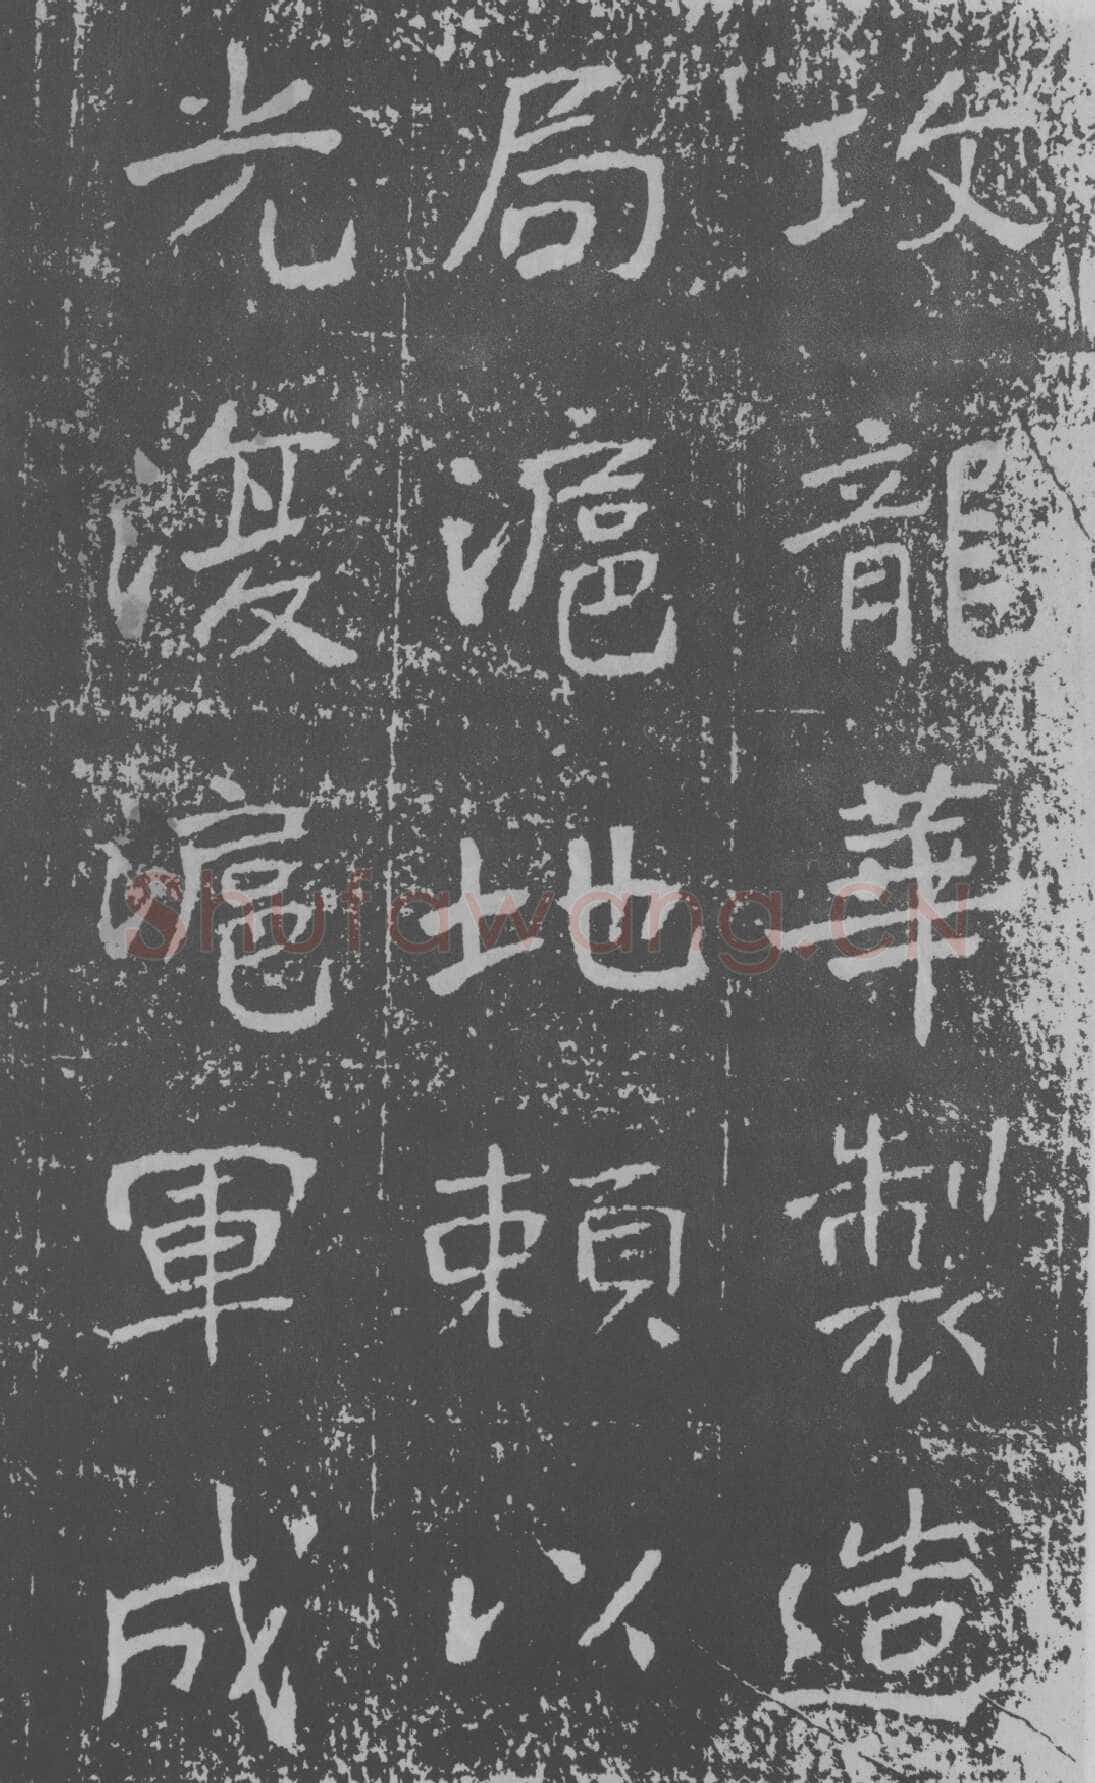 攻龍華製造
局滬地賴以
光復滬軍成
Shufawang.CN